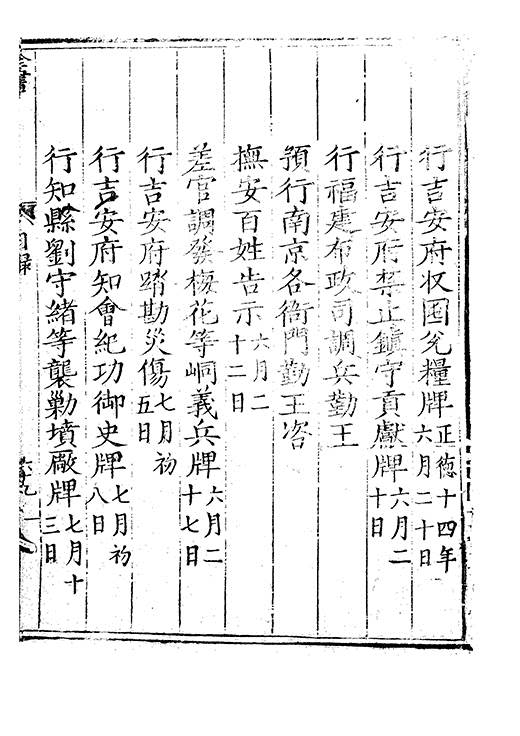 行吉安府収囤兊糧牌正德十四年六月二十日
行吉安府禁止鎮守貢獻牌六月二十日
行福建布政司調兵勤王
預行南京各衙門勤王咨
撫安百姓告示六月二十二日
差官調發梅花等峒義兵牌六月二十七日
行吉安府踏勘災傷七月初五日
行吉安府知會紀功御史牌七月初八日
行知縣劉守緒等襲勦墳厰牌七月十三日
全書
目録